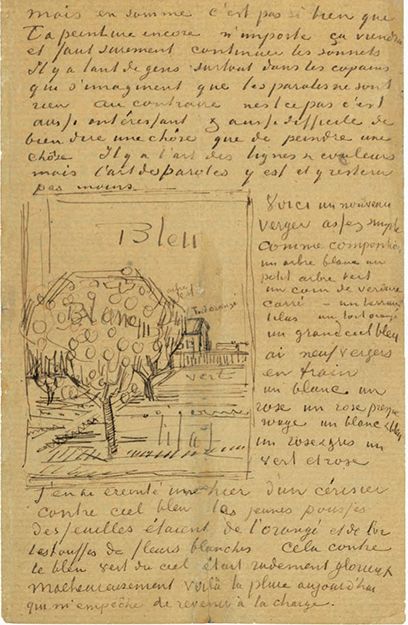 mais en somme c'est pas si bien que
ta peinture encore n'importe ça viendra
et faut surement continuer les sonnets
Il y a tant de gens surtout dans les copains
qui s'imaginent que les paroles ne sont
rien au contraire n'est ce pas c'est
aussi intéressant & aussi difficile de
bien dire une chose que de peindre une
chose Il y a l'art des lignes & couleurs
mais l'art des paroles y est et y restera
pas moins
Bleu
Blanc
vert
Toit orangé
vert
lilas
Voici un nouveau
verger assez simple
comme composition
un arbre blanc un
petit arbre vert
un coin de verdure
carré – un terrain
lilas un toit orangé
un grand ciel bleu
ai neuf vergers
en train
un blanc un
rose un rose presque
rouge un blanc & bleu
un rose & gris un
vert et rose
J'en ai éreinté un hier d'un cérisier
contre ciel bleu les jeunes pousses
des feuilles étaient de l'orangé et de l'or
les touffes de fleurs blanches Cela contre
le bleu vert du ciel était rudement glorieux
Malheureusement voilà la pluie aujourd'hui
qui m'empêche de revenir à la charge.